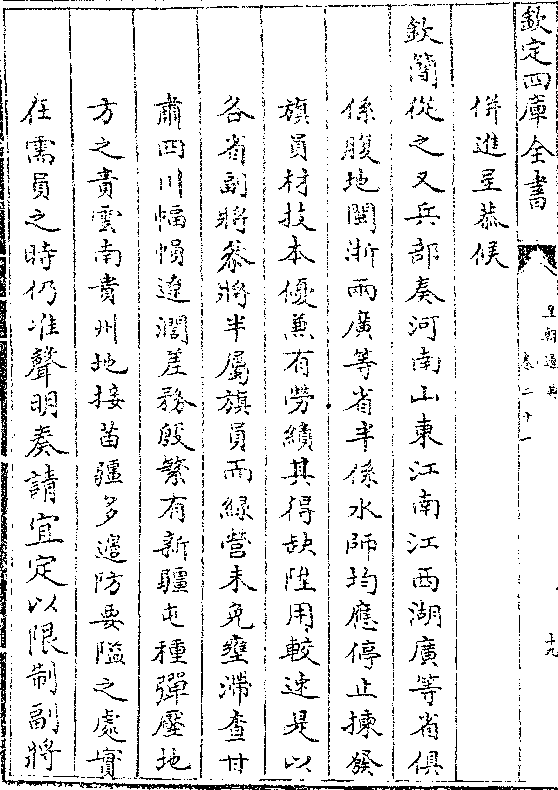 欽定四庫全書
皇朝通典
卷二十一
十九
併進呈恭候
欽簡從之又兵部奏河南山東江南江西湖廣等省俱
係腹地閩浙兩廣等省半係水師均應停止揀發
旗員材技本優兼有勞績其得缺陞用較速是以
各省副將叅將半屬旗員而緑營未免壅滯查甘
肅四川幅𢄙遼濶差務殷繁有新疆屯種彈壓地
方之責雲南貴州地接苗疆多邊防要隘之處實
在需員之時仍准聲明奏請宜定以限制副將